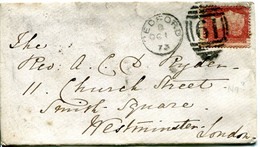 BEDFORD
OC 1
73
61
The
Rev. A. C. D. Ryder
11. Church Street
Smith Square.
Westminster.
London.